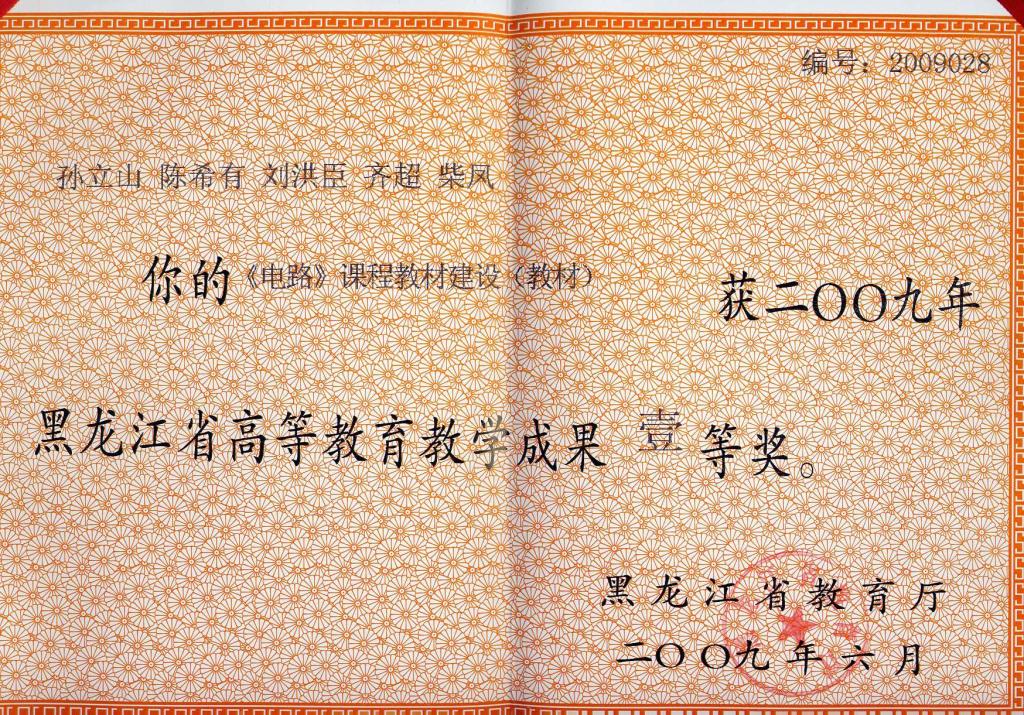 编号：2009028
孙立山 陈希有 刘洪臣 齐超 柴凤
你的《电路》课程教材建设（教材） 获二〇〇九年
黑龙江省高等教育教学成果 壹 等奖。
黑龙江省教育厅
二〇〇九年六月